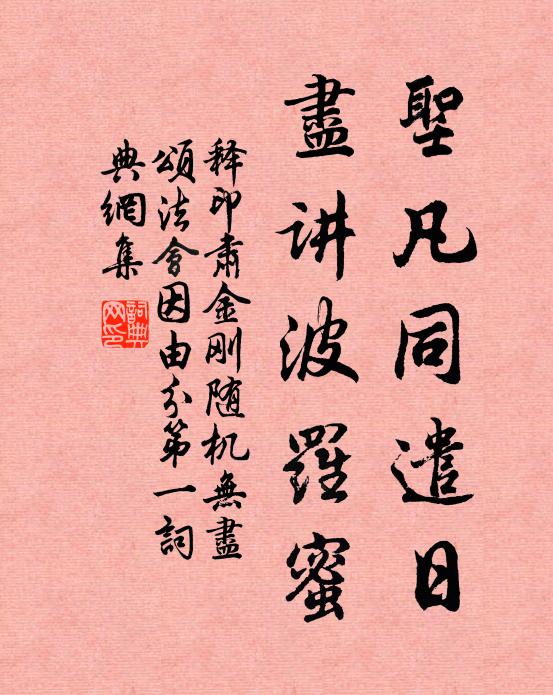 聖凡同遣日
盡讲波羅蜜
释印肃金刚随机無盡
頌法會因由分第一詞
典網集
詞典
网印